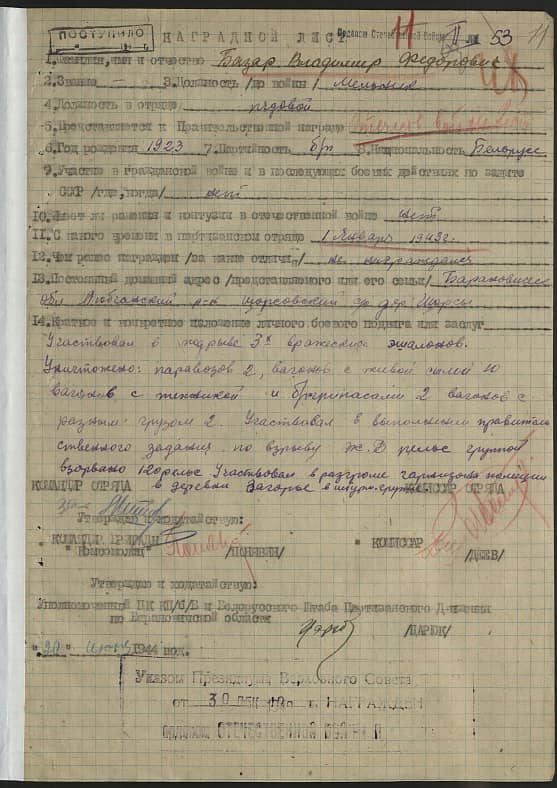 ПОСТУПИЛО
НАГРАДНОЙ ЛИСТ
Орденом Отечественной Войны
11 II 53
1. Фамилия, имя и отчество Базар Владимир Федорович
2. Звание — 3. Должность /до войны/ Мельник
4. Должность в отряде рядовой
5. Представляется к Правительственной награде
6. Год рождения 1923 7. Партийность б/п 8. Национальность Белорус
9. Участие в гражданской войне и в последующих боевых действиях по защите
СССР /где, когда/ нет
10. Имеет ли ранения и контузии в отечественной войне нет
11. С какого времени в партизанском отряде 1 Января 1943 г.
12. Чем ранее награжден /за какие отличия/ не награждался
13. Постоянный домашний адрес /представляемого или его семьи/ Барановичск
обл Любчанский р-н Щорсовский с/с дер. Щорсы
14. Краткое и конкретное изложение личного боевого подвига или заслуг
Участвовал в подрыве 3х вражеских эшалонов.
Уничтожено: паравозов 2, вагонов с живой силой 10
вагонов с техникой и б/припасами 2 вагонов с
разным грузом 2. Участвовал в выполнении правитель
ственного задания по взрыву Ж.Д рельс группой
взорвано 120 рельс Участвовал в разгроме гарнизона полиции
в деревни Загорье в штурм. группе
КОМАНДИР ОТРЯДА КОМИССАР ОТРЯДА
Утверждаю и ходатайствую:
КОМАНДИР БРИГАДЫ КОМИССАР
"Комсомолец" /ДЕЕВ/
Утверждаю и ходатайствую:
Уполномоченный ЦК КП/б/Б и Белорусского Штаба Партизанского Движения
по Барановичской области
/ЦАРЮК/
"20" июня 1944 год.
Указом Президиума Верховного Совета
от 30 ДЕК г. НАГРАЖДЕН
ОТЕЧЕСТВЕННОЙ ВОЙНЫ